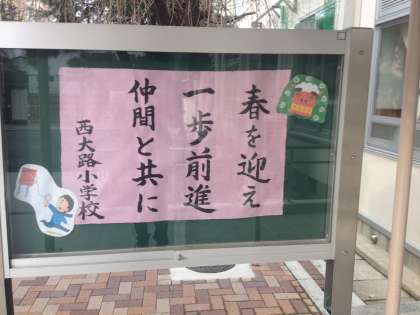 春を迎え
一歩前進
仲間と共に
西大路小学校